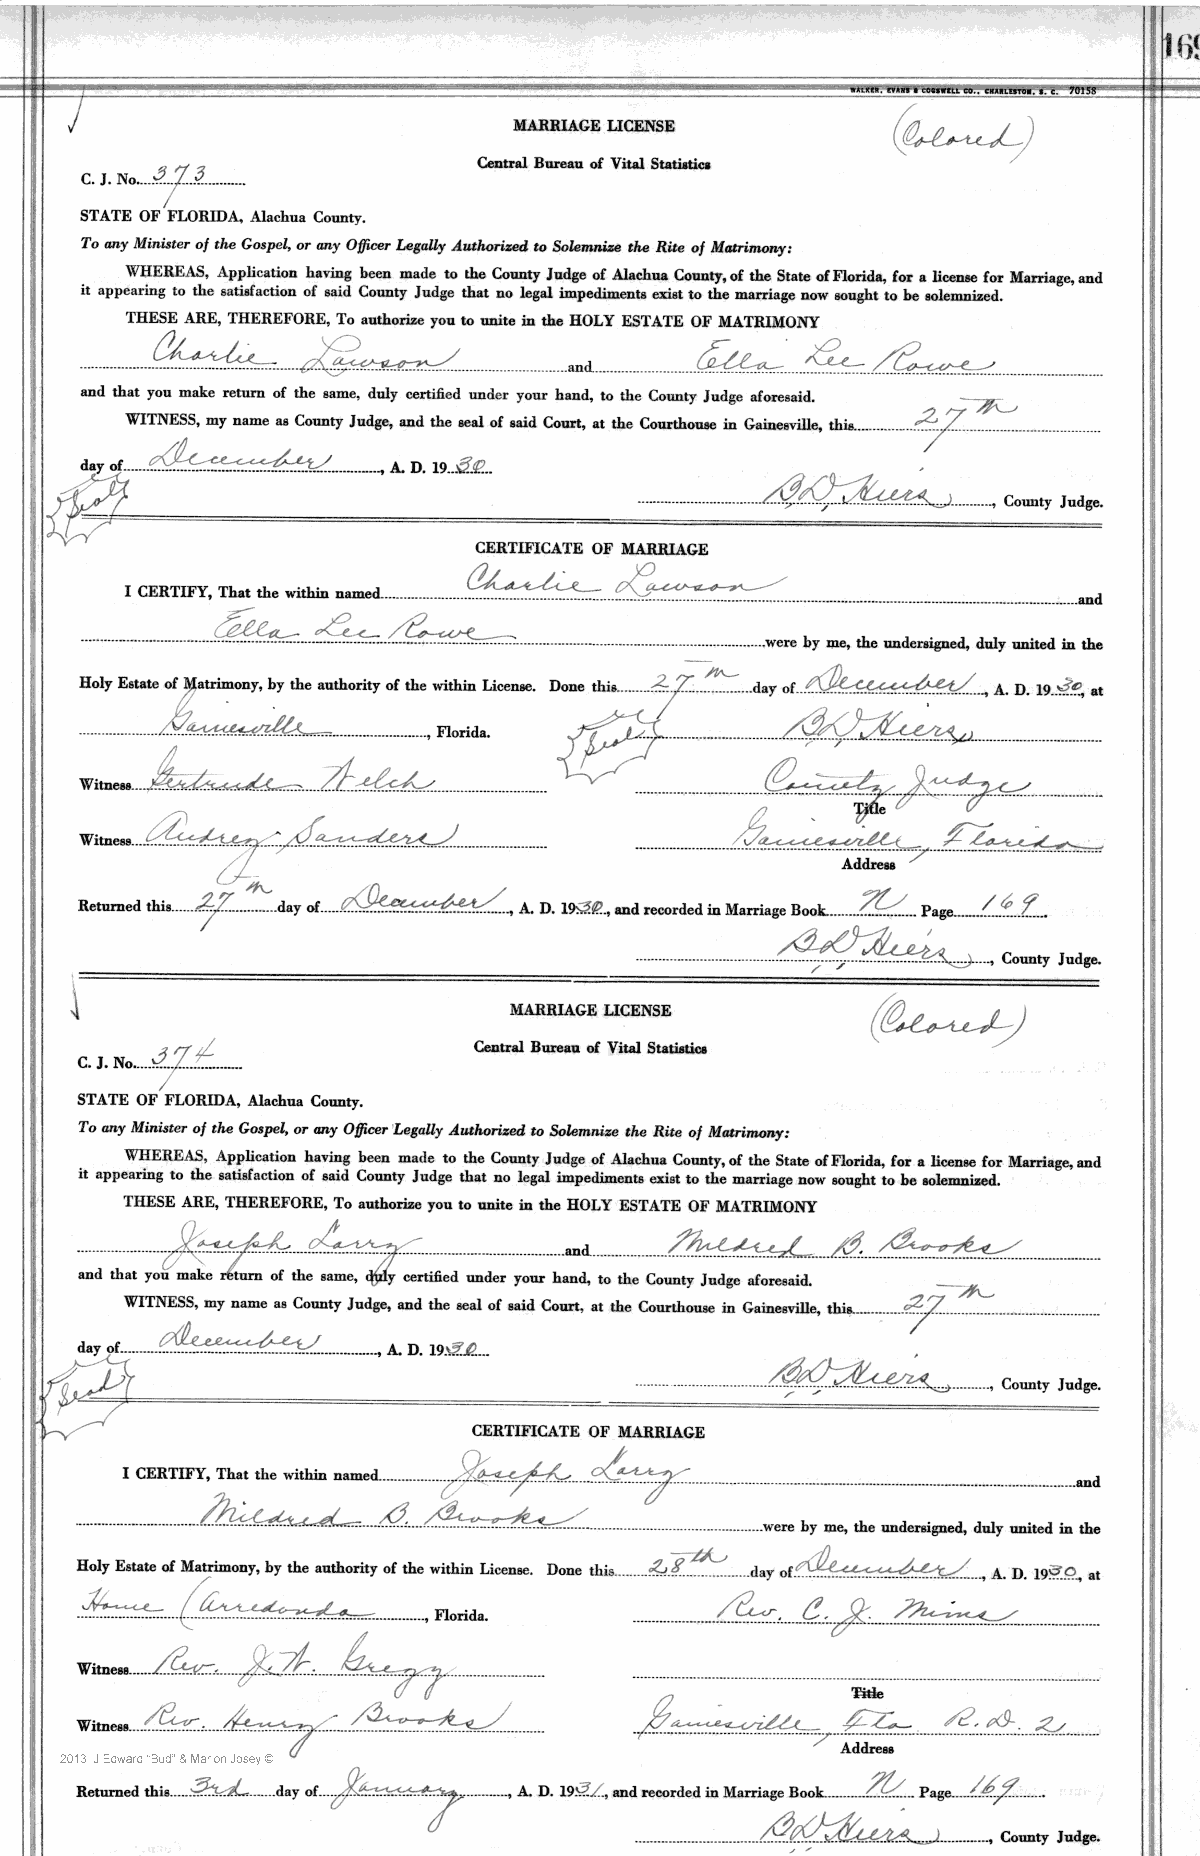 169
WALKER, EVANS & COGSWELL CO., CHARLESTON, S. C. 70158
MARRIAGE LICENSE (Colored)
Central Bureau of Vital Statistics
C. J. No. 373
STATE OF FLORIDA, Alachua County.
To any Minister of the Gospel, or any Officer Legally Authorized to Solemnize the Rite of Matrimony:
WHEREAS, Application having been made to the County Judge of Alachua County, of the State of Florida, for a license for Marriage, and
it appearing to the satisfaction of said County Judge that no legal impediments exist to the marriage now sought to be solemnized.
THESE ARE, THEREFORE, To authorize you to unite in the HOLY ESTATE OF MATRIMONY
Charlie Lawson and Ella Lee Rowe
and that you make return of the same, duly certified under your hand, to the County Judge aforesaid.
WITNESS, my name as County Judge, and the seal of said Court, at the Courthouse in Gainesville, this 27th
day of December, A. D. 1930
Seal B, D, Hiers, County Judge.
CERTIFICATE OF MARRIAGE
I CERTIFY, That the within named Charlie Lawson and
Ella Lee Rowe were by me, the undersigned, duly united in the
Holy Estate of Matrimony, by the authority of the within License. Done this 27th day of December, A. D. 1930, at
Gainesville, Florida. Seal B, D, Hiers,
Witness Gertrude Welch County Judge
Title
Witness Audrey Sanders Gainesville, Florida
Address
Returned this 27th day of December, A. D. 1930, and recorded in Marriage Book N Page 169.
B, D, Hiers, County Judge.
MARRIAGE LICENSE (Colored)
Central Bureau of Vital Statistics
C. J. No. 374
STATE OF FLORIDA, Alachua County.
To any Minister of the Gospel, or any Officer Legally Authorized to Solemnize the Rite of Matrimony:
WHEREAS, Application having been made to the County Judge of Alachua County, of the State of Florida, for a license for Marriage, and
it appearing to the satisfaction of said County Judge that no legal impediments exist to the marriage now sought to be solemnized.
THESE ARE, THEREFORE, To authorize you to unite in the HOLY ESTATE OF MATRIMONY
Joseph Larry and Mildred B. Brooks
and that you make return of the same, duly certified under your hand, to the County Judge aforesaid.
WITNESS, my name as County Judge, and the seal of said Court, at the Courthouse in Gainesville, this 27th
day of December, A. D. 1930
Seal B, D, Hiers, County Judge.
CERTIFICATE OF MARRIAGE
I CERTIFY, That the within named Joseph Larry and
Mildred B. Brooks were by me, the undersigned, duly united in the
Holy Estate of Matrimony, by the authority of the within License. Done this 28th day of December, A. D. 1930, at
Home (Arredonda, Florida. Rev. C. J. Mims
Witness Rev. J. W. Gregg
Title
Witness Rev. Henry Brooks Gainesville, Fla R. D. 2
Address
2013 J Edward "Bud" & Marion Josey ©
Returned this 3rd day of January, A. D. 1931, and recorded in Marriage Book N Page 169.
B, D, Hiers, County Judge.